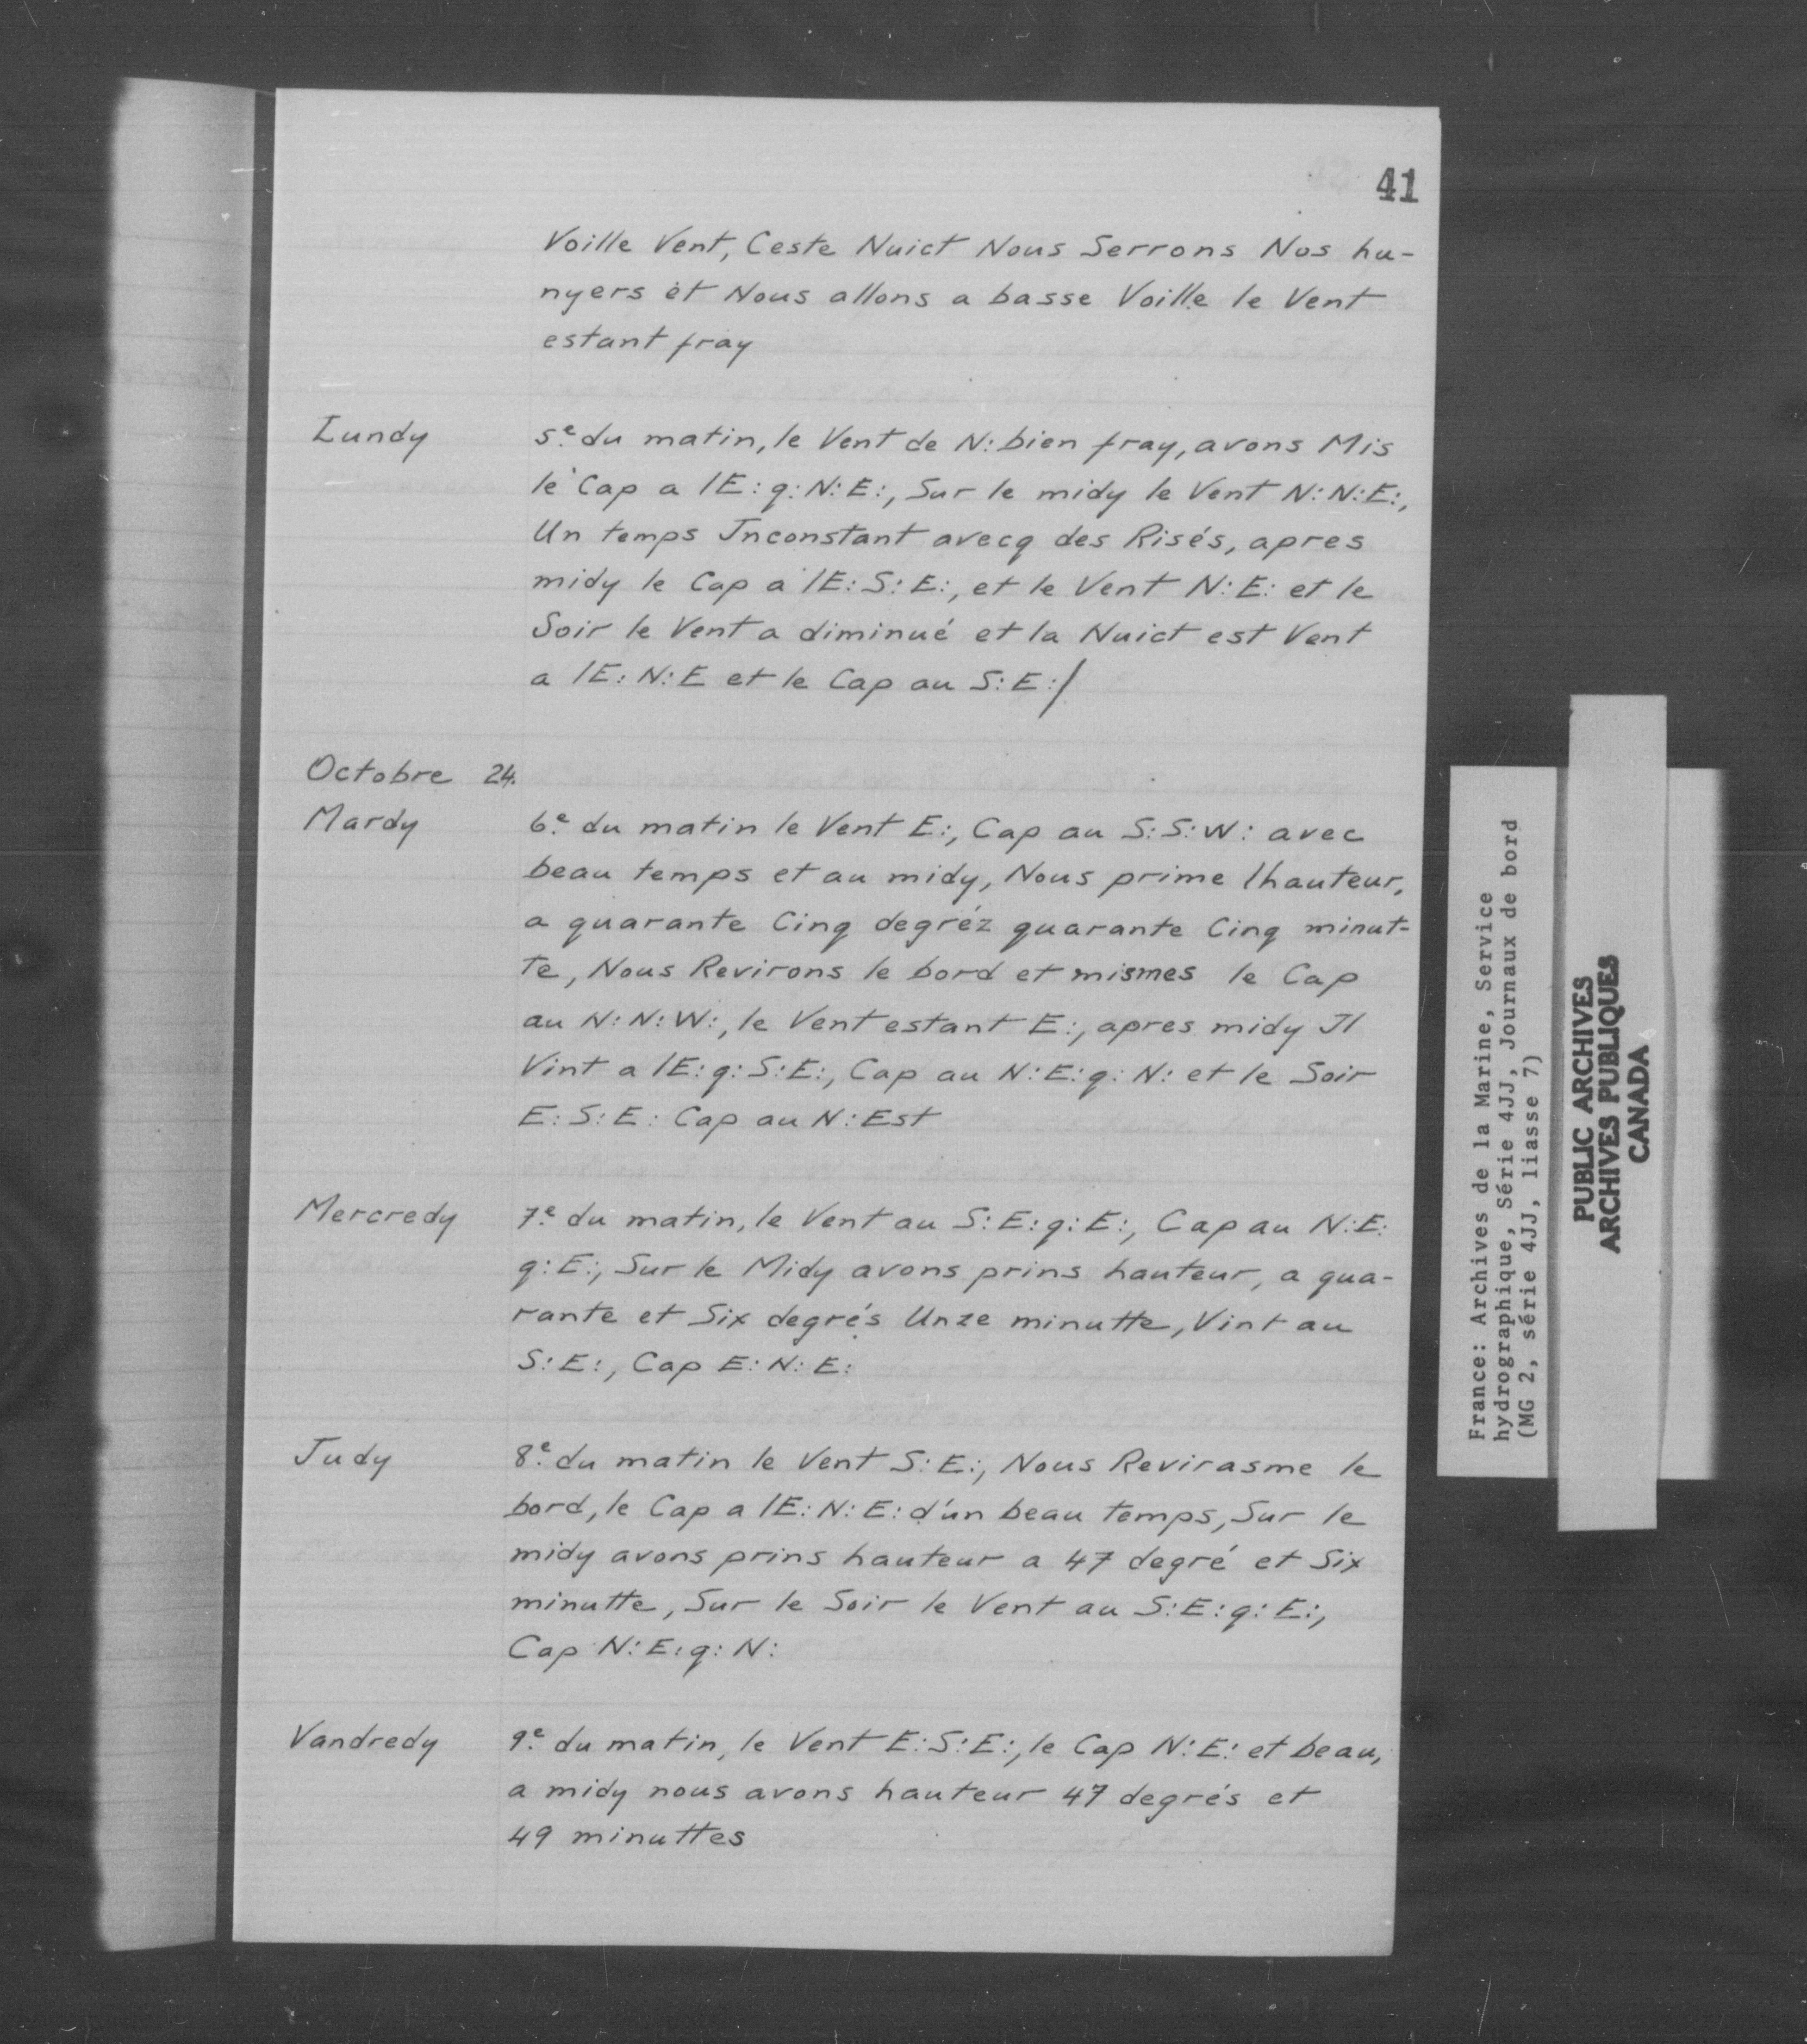 41
Voille Vent, Ceste Nuict Nous Serrons Nos hu-
nyers et Nous allons a basse Voille le Vent
estant fray
Lundy 5e. du matin, le Vent de N: bien fray, avons Mis
le Cap a lE: q: N: E:, Sur le midy le Vent N: N: E:,
Un temps Jnconstant avecq des Risés, apres
midy le Cap a lE: S: E:, et le Vent N: E: et le
Soir le Vent a diminué et la Nuict est Vent
a lE: N: E et le Cap au S: E:/
Octobre 24.
Mardy 6e. du matin le Vent E:, Cap au S: S: W: avec
beau temps et au midy, Nous prime lhauteur,
a quarante Cinq degréz quarante Cinq minut-
te, Nous Revirons le bord et mismes le Cap
au N: N: W:, le Vent estant E:, apres midy Jl
Vint a lE: q: S: E:, Cap au N: E: q: N: et le Soir
E: S: E: Cap au N: Est
Mercredy 7e. du matin, le Vent au S: E: q: E:, Cap au N: E:
q: E:, Sur le Midy avons prins hauteur, a qua-
rante et Six degrés Unze minutte, Vint au
S: E:, Cap E: N: E:
Judy 8e. du matin le Vent S: E:, Nous Revirasme le
bord, le Cap a lE: N: E: d'un beau temps, Sur le
midy avons prins hauteur a 47 degré et Six
minutte, Sur le Soir le Vent au S: E: q: E:,
Cap N: E: q: N:
Vandredy 9e. du matin, le Vent E: S: E:, le Cap N: E: et beau,
a midy nous avons hauteur 47 degrés et
49 minuttes
France: Archives de la Marine, Service
hydrographique, Série 4JJ, Journaux de bord
(MG 2, série 4JJ, liasse 7)
PUBLIC ARCHIVES
ARCHIVES PUBLIQUES
CANADA